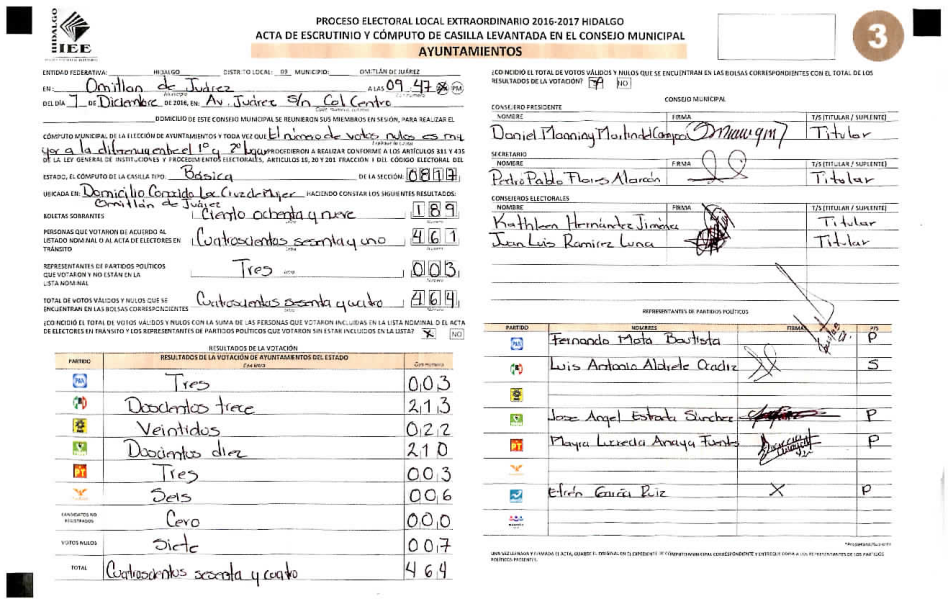 HIDALGO
IEE
PROCESO ELECTORAL LOCAL EXTRAORDINARIO 2016-2017 HIDALGO
ACTA DE ESCRUTINIO Y CÓMPUTO DE CASILLA LEVANTADA EN EL CONSEJO MUNICIPAL
AYUNTAMIENTOS
3
ENTIDAD FEDERATIVA: HIDALGO DISTRITO LOCAL: 09 MUNICIPIO: OMITLÁN DE JUÁREZ
EN: Omitlan de Juárez A LAS 09:47 PM
DEL DÍA 7 de Diciembre DE 2016, EN Av. Juárez S/n Col Centro
DOMICILIO DE ESTE CONSEJO MUNICIPAL SE REUNIERON SUS MIEMBROS EN SESIÓN, PARA REALIZAR EL
CÓMPUTO MUNICIPAL DE LA ELECCIÓN DE AYUNTAMIENTOS Y TODA VEZ QUE El número de votos nulos es ma
yor a la diferencia entre el 1º y 2º lugar PROCEDIERON A REALIZAR CONFORME A LOS ARTÍCULOS 311 Y 435
DE LA LEY GENERAL DE INSTITUCIONES Y PROCEDIMIENTOS ELECTORALES, ARTÍCULOS 19, 20 Y 201 FRACCIÓN I DEL CÓDIGO ELECTORAL DEL
ESTADO, EL CÓMPUTO DE LA CASILLA TIPO: Básica DE LA SECCIÓN: 0817
UBICADA EN: Domicilio Conocido HACIENDO CONSTAR LOS SIGUIENTES RESULTADOS:
Omitlán de Juárez
BOLETAS SOBRANTES Ciento ochenta y nueve 189
PERSONAS QUE VOTARON DE ACUERDO AL
LISTADO NOMINAL O AL ACTA DE ELECTORES EN
TRÁNSITO Cuatroscientos sesenta y uno 461
REPRESENTANTES DE PARTIDOS POLÍTICOS
QUE VOTARON Y NO ESTÁN EN LA
LISTA NOMINAL Tres 003
TOTAL DE VOTOS VÁLIDOS Y NULOS QUE SE
ENCUENTRAN EN LAS BOLSAS CORRESPONDIENTES Cuatroscientos sesenta y cuatro 464
¿COINCIDIÓ EL TOTAL DE VOTOS VÁLIDOS Y NULOS CON LA SUMA DE LAS PERSONAS QUE VOTARON INCLUIDAS EN LA LISTA NOMINAL O EL ACTA
DE ELECTORES EN TRÁNSITO Y LOS REPRESENTANTES DE PARTIDOS POLÍTICOS QUE VOTARON SIN ESTAR INCLUIDOS EN LA LISTA? X NO
RESULTADOS DE LA VOTACIÓN
PARTIDO RESULTADOS DE LA VOTACIÓN DE AYUNTAMIENTOS DEL ESTADO
Con letra Con número
PAN Tres 003
PRI Doscientos trece 213
PRD Veintidos 022
VERDE Doscientos diez 210
PT Tres 003
Seis 006
CANDIDATOS NO
REGISTRADOS Cero 000
VOTOS NULOS Siete 007
TOTAL Cuatroscientos sesenta y cuatro 464
¿COINCIDIÓ EL TOTAL DE VOTOS VÁLIDOS Y NULOS QUE SE ENCUENTRAN EN LAS BOLSAS CORRESPONDIENTES CON EL TOTAL DE LOS
RESULTADOS DE LA VOTACIÓN? NO
CONSEJO MUNICIPAL
CONSEJERO PRESIDENTE
NOMBRE FIRMA T/S (TITULAR / SUPLENTE)
Daniel Manning Martin del Campo Titular
SECRETARIO
NOMBRE FIRMA T/S (TITULAR / SUPLENTE)
Pedro Pablo Flores Alarcón Titular
CONSEJEROS ELECTORALES
NOMBRE FIRMA T/S (TITULAR / SUPLENTE)
Kathleen Hernández Jiménez Titular
Juan Luis Ramirez Luna Titular
REPRESENTANTES DE PARTIDOS POLÍTICOS
PARTIDO NOMBRES FIRMA P/S
PAN Fernando Mota Bautista P
PRI Luis Antonio Aldrete S
Jose Angel Estrada Sánchez P
PT Mayra Lucecita Anaya P
Efrén García Ruiz X P
UNA VEZ LLENADA Y FIRMADA EL ACTA, GUARDE EL ORIGINAL EN EL EXPEDIENTE DE CÓMPUTO MUNICIPAL CORRESPONDIENTE Y ENTREGUE COPIA A LOS REPRESENTANTES DE LOS PARTIDOS
POLÍTICOS PRESENTES.